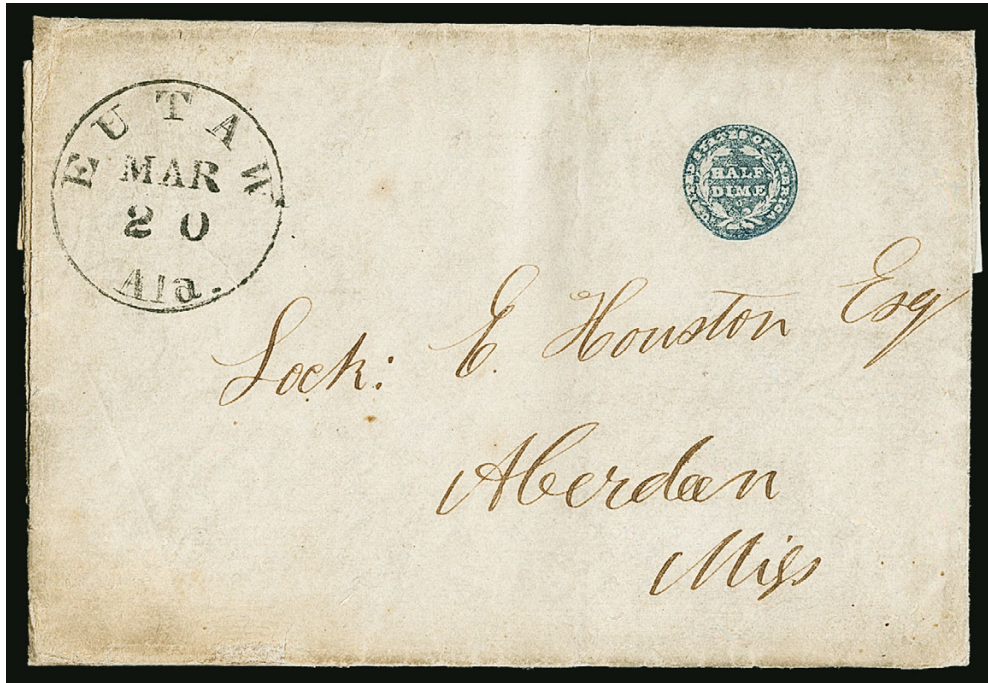 EUTAW
MAR
20
Ala.
UNITED STATES OF AMERICA
HALF
DIME
Lock: E. Houston Esq
Aberdeen
Miss